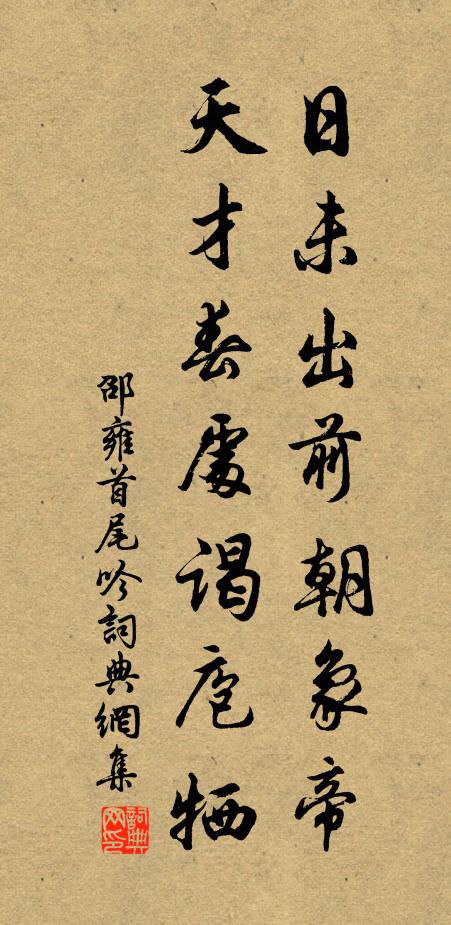 日未出前朝象帝
天才春處谒庖牺
邵雍首尾吟詞典網集
詞典网印